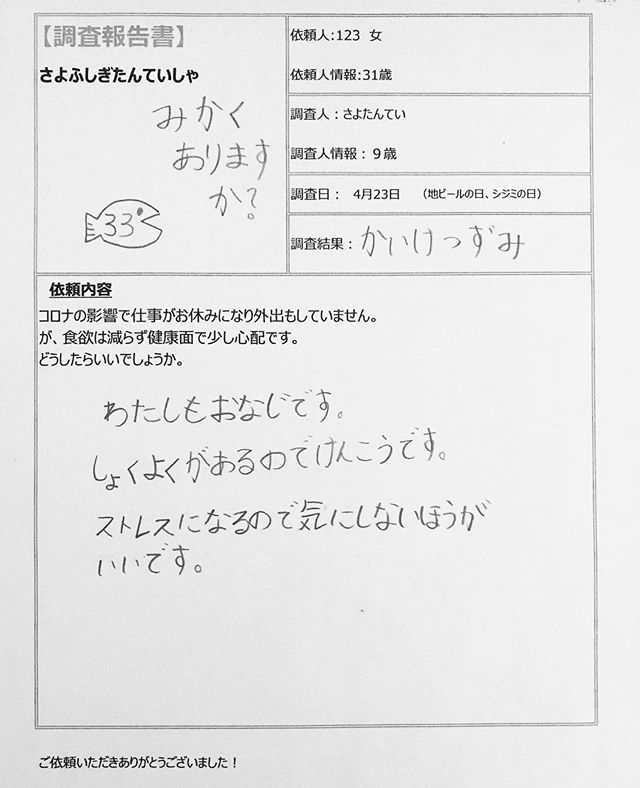 【調査報告書】
さよふしぎたんていしゃ
みかく
あります
か?
33
依頼人:123 女
依頼人情報:31歳
調査人:さよたんてい
調査人情報:9歳
調査日: 4月23日 (地ビールの日、シジミの日)
調査結果: かいけつずみ
依頼内容
コロナの影響で仕事がお休みになり外出もしていません。
が、食欲は減らず健康面で少し心配です。
どうしたらいいでしょうか。
わたしもおなじです。
しょくよくがあるのでけんこうです。
ストレスになるので気にしないほうが
いいです。
ご依頼いただきありがとうございました!